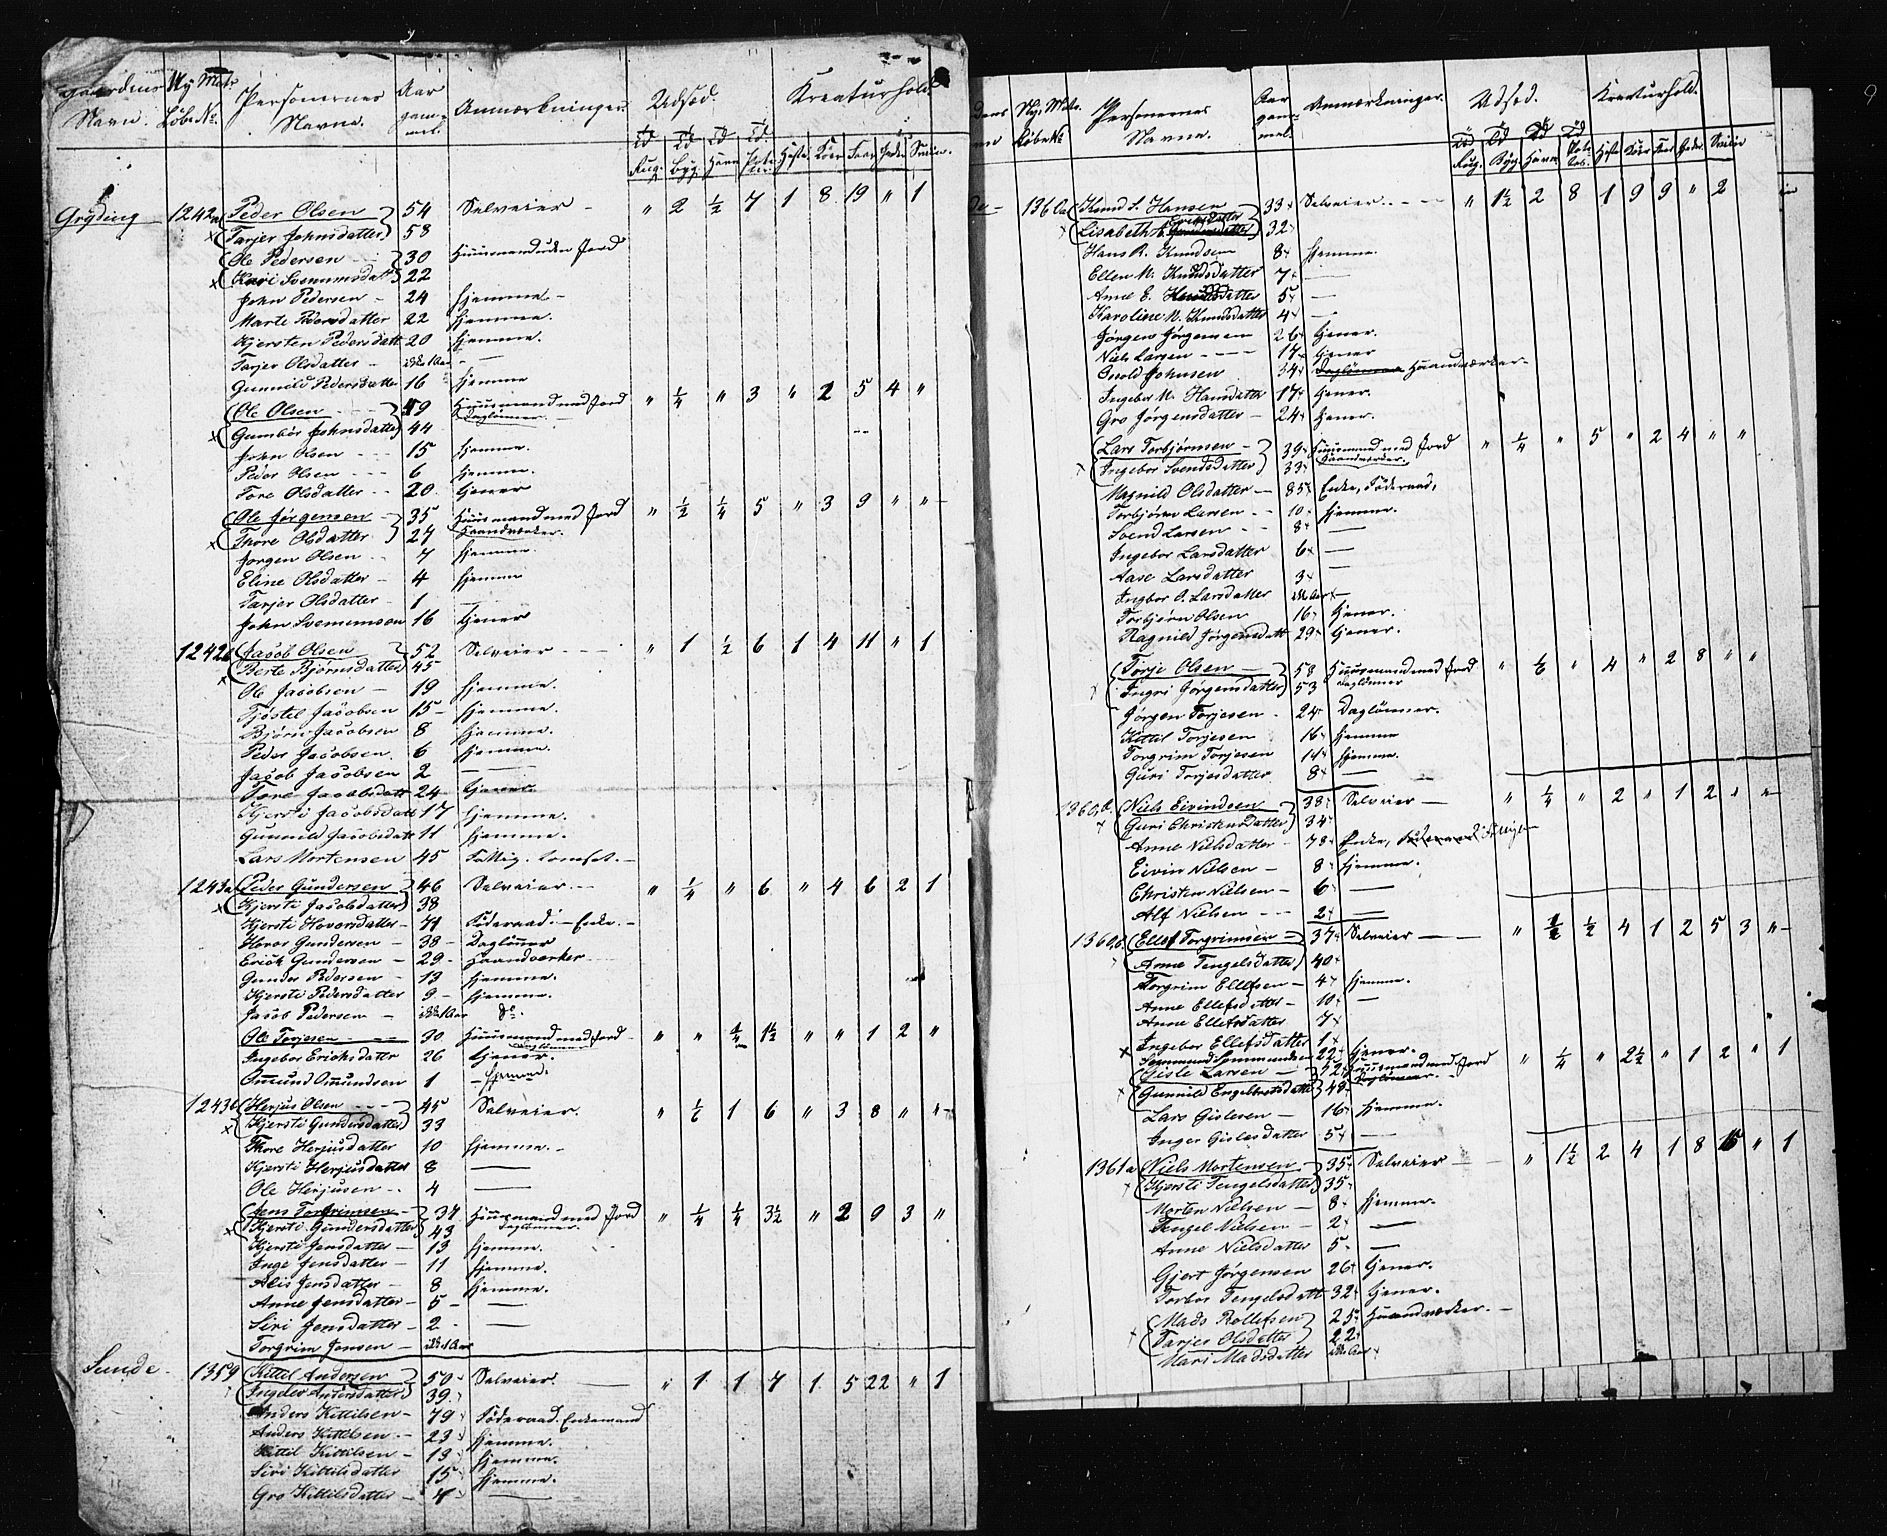 Gaardenes Navn. Ny Matr. Löbe No. Personernes Navne. Aar gammel. Anmærkninger. Udsæd. Kreaturhold.
Td Rug. Td Byg. Td Havre Td. Heste Köer Faar Svin.
Gryting 1242a Peder Olsen 54 Selveier - " 2 ½ 7 1 8 19 " 1
Tarjer Johnsdatter 58
Ole Pedersen 30 Huusmand uden Jord
Kari Svenumsdatt 22
John Pedersen - 24 hjemme -
Marte Pedersdatter 22 hjemme.
Kjersten Pedersdatt 20 hjemme.
Tarjer Olsdatter - ikke 1 Aar -
Gunnild Pedersdatter 16 hjemme
Ole Olsen 49 Huusmand med Jord Daglönner " ¼ " 3 " 2 5 4 "
Gumbör Johnsdatter 44
John Olsen 15 hjemme.
Peder Olsen 6 hjemme.
Tore Olsdatter 20 tjener
Ole Jörgensen 35 Huusmand med Jord Haandværker. " ½ ¼ 5 " 3 9 " "
Thore Olsdatter 27
Jorgen Olsen 7 hjemme.
Eline Olsdatter - 4 hjemme
Tarjer Olsdatter - 1 -
John Svenumson 16 tjener
1242b Jacob Olsen 52 Selveier " 1 ½ 6 1 4 11 " 1
Berte Bjørnsdatter 45
Ole Jacobsen - 19 hjemme.
Tjöstel Jacobsen 15 - hjemme.
Björn Jacobsen 8 hjemme.
Peder Jacobsen. 6 hjemme.
Jacob Jacobsen 2 -
Tore Jacobsdatt 24 tjener
Kjersti Jacobsdatt 17 hjemme.
Gunnild Jacobsdatt 11 hjemme.
Lars Mortensen 45 Fattig.
1243a Peder Gundersen 46 Selveier. " ¼ " 6 " 4 6 2 1
Kjersti Jacobsdatter 38
Kjersti Hoversdatter - 71 Föderaad - Enke. -
Hover Gundersen - 38 - Daglönner
Erick Gundersen - 29 - Haandverker
Gunder Pedersen - 13 hjemme.
Kjersti Pedersdatter 9 - hjemme.
Jacob Pedersen - ikke 1 Aar do.
Ole Torjesen 30 Huusmand med Jord Daglönner " " ¼ 1½ " " 1 2 "
Ingebor Ericksdatter 26 tjener.
Omund Omundsen 1 - hjemme.
1243b Herjus Olsen 45 Selveier. " ½ 1 6 " 3 8 " "
Kjersti Gundersdatter 33
Thore Herjusdatter 10 hjemme. -
Kjersti Herjusdatter 8 -
Ole Herjusen 4 -
Jens Torgrimsen 34 Huusmand med Jord Daglönner " ¼ ¼ 3½ " 2 9 3 "
Kjersti Gundersdatter 43
Kjersti Jensdatter - 13 hjemme.
Inge Jensdatter - 11 hjemme.
Alis Jensdatter - 8 hjemme.
Anne Jensdatter - 5 - -
Siri Jensdatter - 2 -
Torgrim Jensen - ikke 1 Aar
Sunde - 1359 Kittel Andersen 50 Selveier. " 1 1 7 1 5 22 " 1
Ingeler Andersdatter 39
Anders Kittilsen - 79 Föderaad. Enkemand
Anders Kittelsen - 23 hjemme.
Kittil Kittilsen - 13 hjemme.
Siri Kittilsdatter 15 hjemme.
Gro Kittilsdatter - 4 -
Ny Matr. Löbe No Personernes Navne. Aar gammel. Anmærkninger. Udsæd. Kreaturhold.
Td Rug. Td Byg. Td Havre Td Heste Köer Faar Svin
do - 1360a Knud S. Hansen 33 Selveier " 1½ 2 8 1 9 9 " 2
Lisabeth Ericksdatter 32
Hans R. Knudsen 8 hjemme.
Ellen M. Knudsdatter 7 -
Anne E. Knudsdatter 5 -
Karoline N. Knudsdatter 4 -
Jörgen Jörgensen 26 tjener.
Niels Larsen 17 tjener
Onold Johnsen 34 Daglönner Haandværker -
Ingebor M. Hansdatter 17 tjener.
Gro Jörgensdatter - 24 tjener.
Lars Torbjörnsen 39 Huusmand med Jord Haandværker. " ¼ " 5 " 2 4 " "
Ingebor Svendsdatter 33
Magnild Olsdatter - 85 Enke, Föderaad,
Torbjörn Larsen 10 hjemme.
Svend Larsen 8 -
Ingebor Larsdatter 6 -
Aase Larsdatter 3 -
Ingbor O. Larsdatter ikke 1 Aar -
Torbjörn Olsen 16 tjener.
Ragnild Jörgensdatt 29 tjener.
Torje Olsen 58 Huusmand med Jord Daglönner " ½ " 4 " 2 8 " "
Ingri Jörgensdatter 53
Jörgen Torjesen 24 Daglönner.
Kittil Torjesen 16 hjemme
Torgrim Torjesen 14 hjemme.
Guri Torjesdatter 8 -
1360b. Niels Eivindsen 38 Selveier - " ¼ " 2 " 1 2 " "
Guri Christensdatter 34
Anne Nielsdatter - 78 Enke,
Eivin Nielsen - 8 hjemme.
Christen Nielsen - 6 -
Alf Nielsen 2 -
1360b Ellef Torgrimsen - 37 Selveier - " ½ ½ 4 1 2 5 3 "
Anne Tengelsdatter 40
Torgrim Ellefsen - 4 hjemme.
Anne Ellefsdatter - 10 -
Anne Ellefsdatter 7
Ingebor Ellefsdatter 1
Sommund Sommundsen 22 tjener.
Gisle Larsen 52 Huusmand med Jord Daglönner " ¼ " 2½ " 1 2 " 1
Gunnild Engebretsdatt 48
Lars Gislesen - 16 hjemme.
Inger Gislesdatter 5 -
1361a Niels Mortensen 35 Selveier - " 1½ 2 4 1 8 15 " 1
Kjersti Tengelsdatter 35
Morten Nielsen - 8 hjemme.
Tengel Nielsen - 2 -
Anne Nielsdatter 5 -
Gjert Jörgensen 26 tjener.
Torbor Tengelsdatt 32 tjener.
Mads Rollefsen 25 Haandværker. -
Tarjer Olsdatter 22
Mari Madsdatter ikke 1 Aar
9